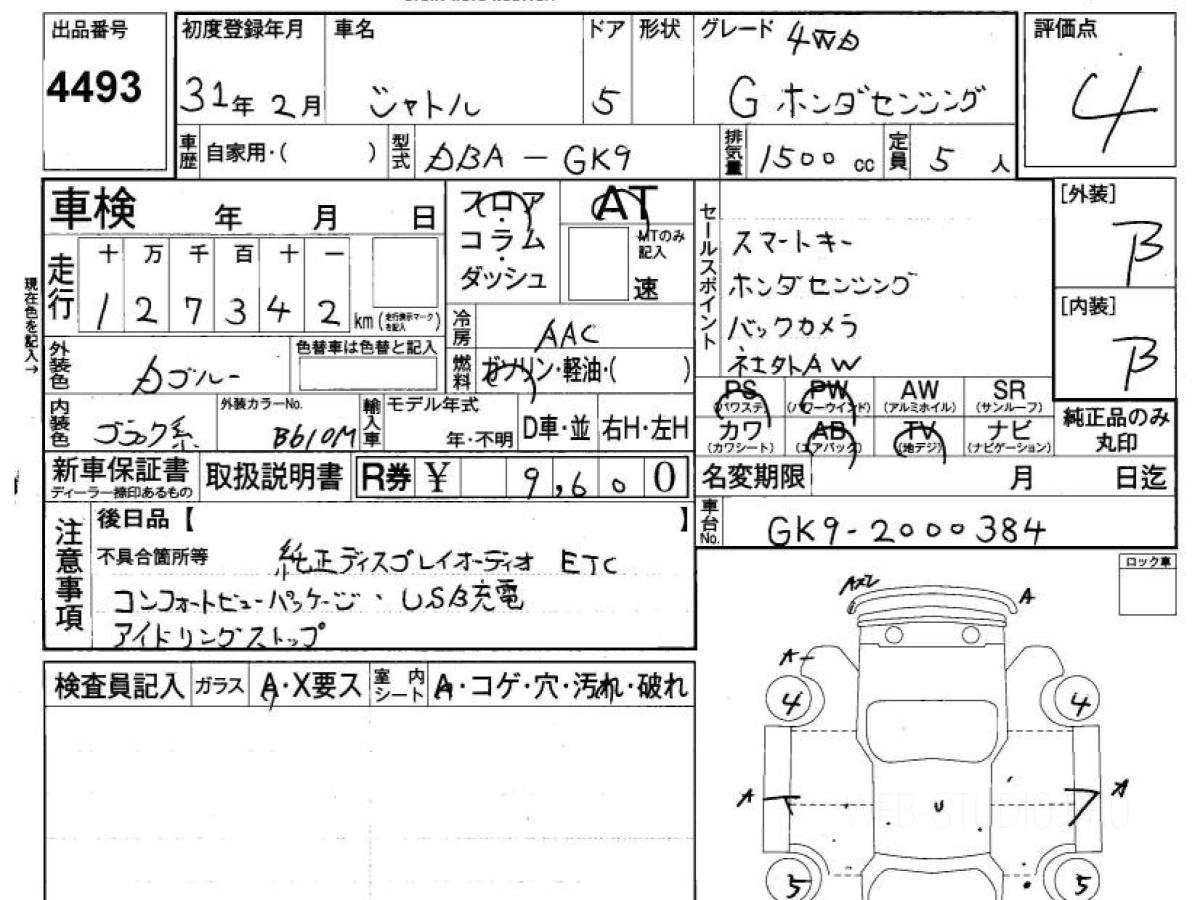 出品番号 初度登録年月 車名 ドア 形状 グレード 4WD 評価点
4493 31年 2月 シャトル 5 G ホンダセンシング 4
車歴 自家用・( ) 型式 DBA-GK9 排気量 1500 cc 定員 5 人
車検 年 月 日 フロア・コラム・ダッシュ AT セールスポイント [外装]
MTのみ記入 速 スマートキー B
走行 十 万 千 百 十 一 ホンダセンシング
現在色を記入→ 1 2 7 3 4 2 km (走行表示マークを記入) バックカメラ [内装]
冷房 AAC B
外装色 色替車は色替と記入 燃料 ガソリン・軽油・( ) AW
ブルー PS (パワステ) PW (パワーウインド) AW (アルミホイル) SR (サンルーフ) 純正品のみ丸印
内装色 ブラック系 外装カラーNo. B610M 輸入車 モデル年式 年・不明 D車・並 右H・左H カワ (カワシート) AB (エアバック) TV (地デジ) ナビ (ナビゲーション)
新車保証書 ディーラー捺印あるもの 取扱説明書 R券 ¥ 9,600 名変期限 月 日迄
注意事項 後日品【 】 車台No. GK9-2000384
不具合箇所等 純正ディスプレイオーディオ ETC ロック車
コンフォートビューパッケージ・USB充電
アイドリングストップ
検査員記入 ガラス A・X要ス 室内シート A・コゲ・穴・汚れ・破れ
A
A-
4 4
A U A
5 5
WEB-STUDIO